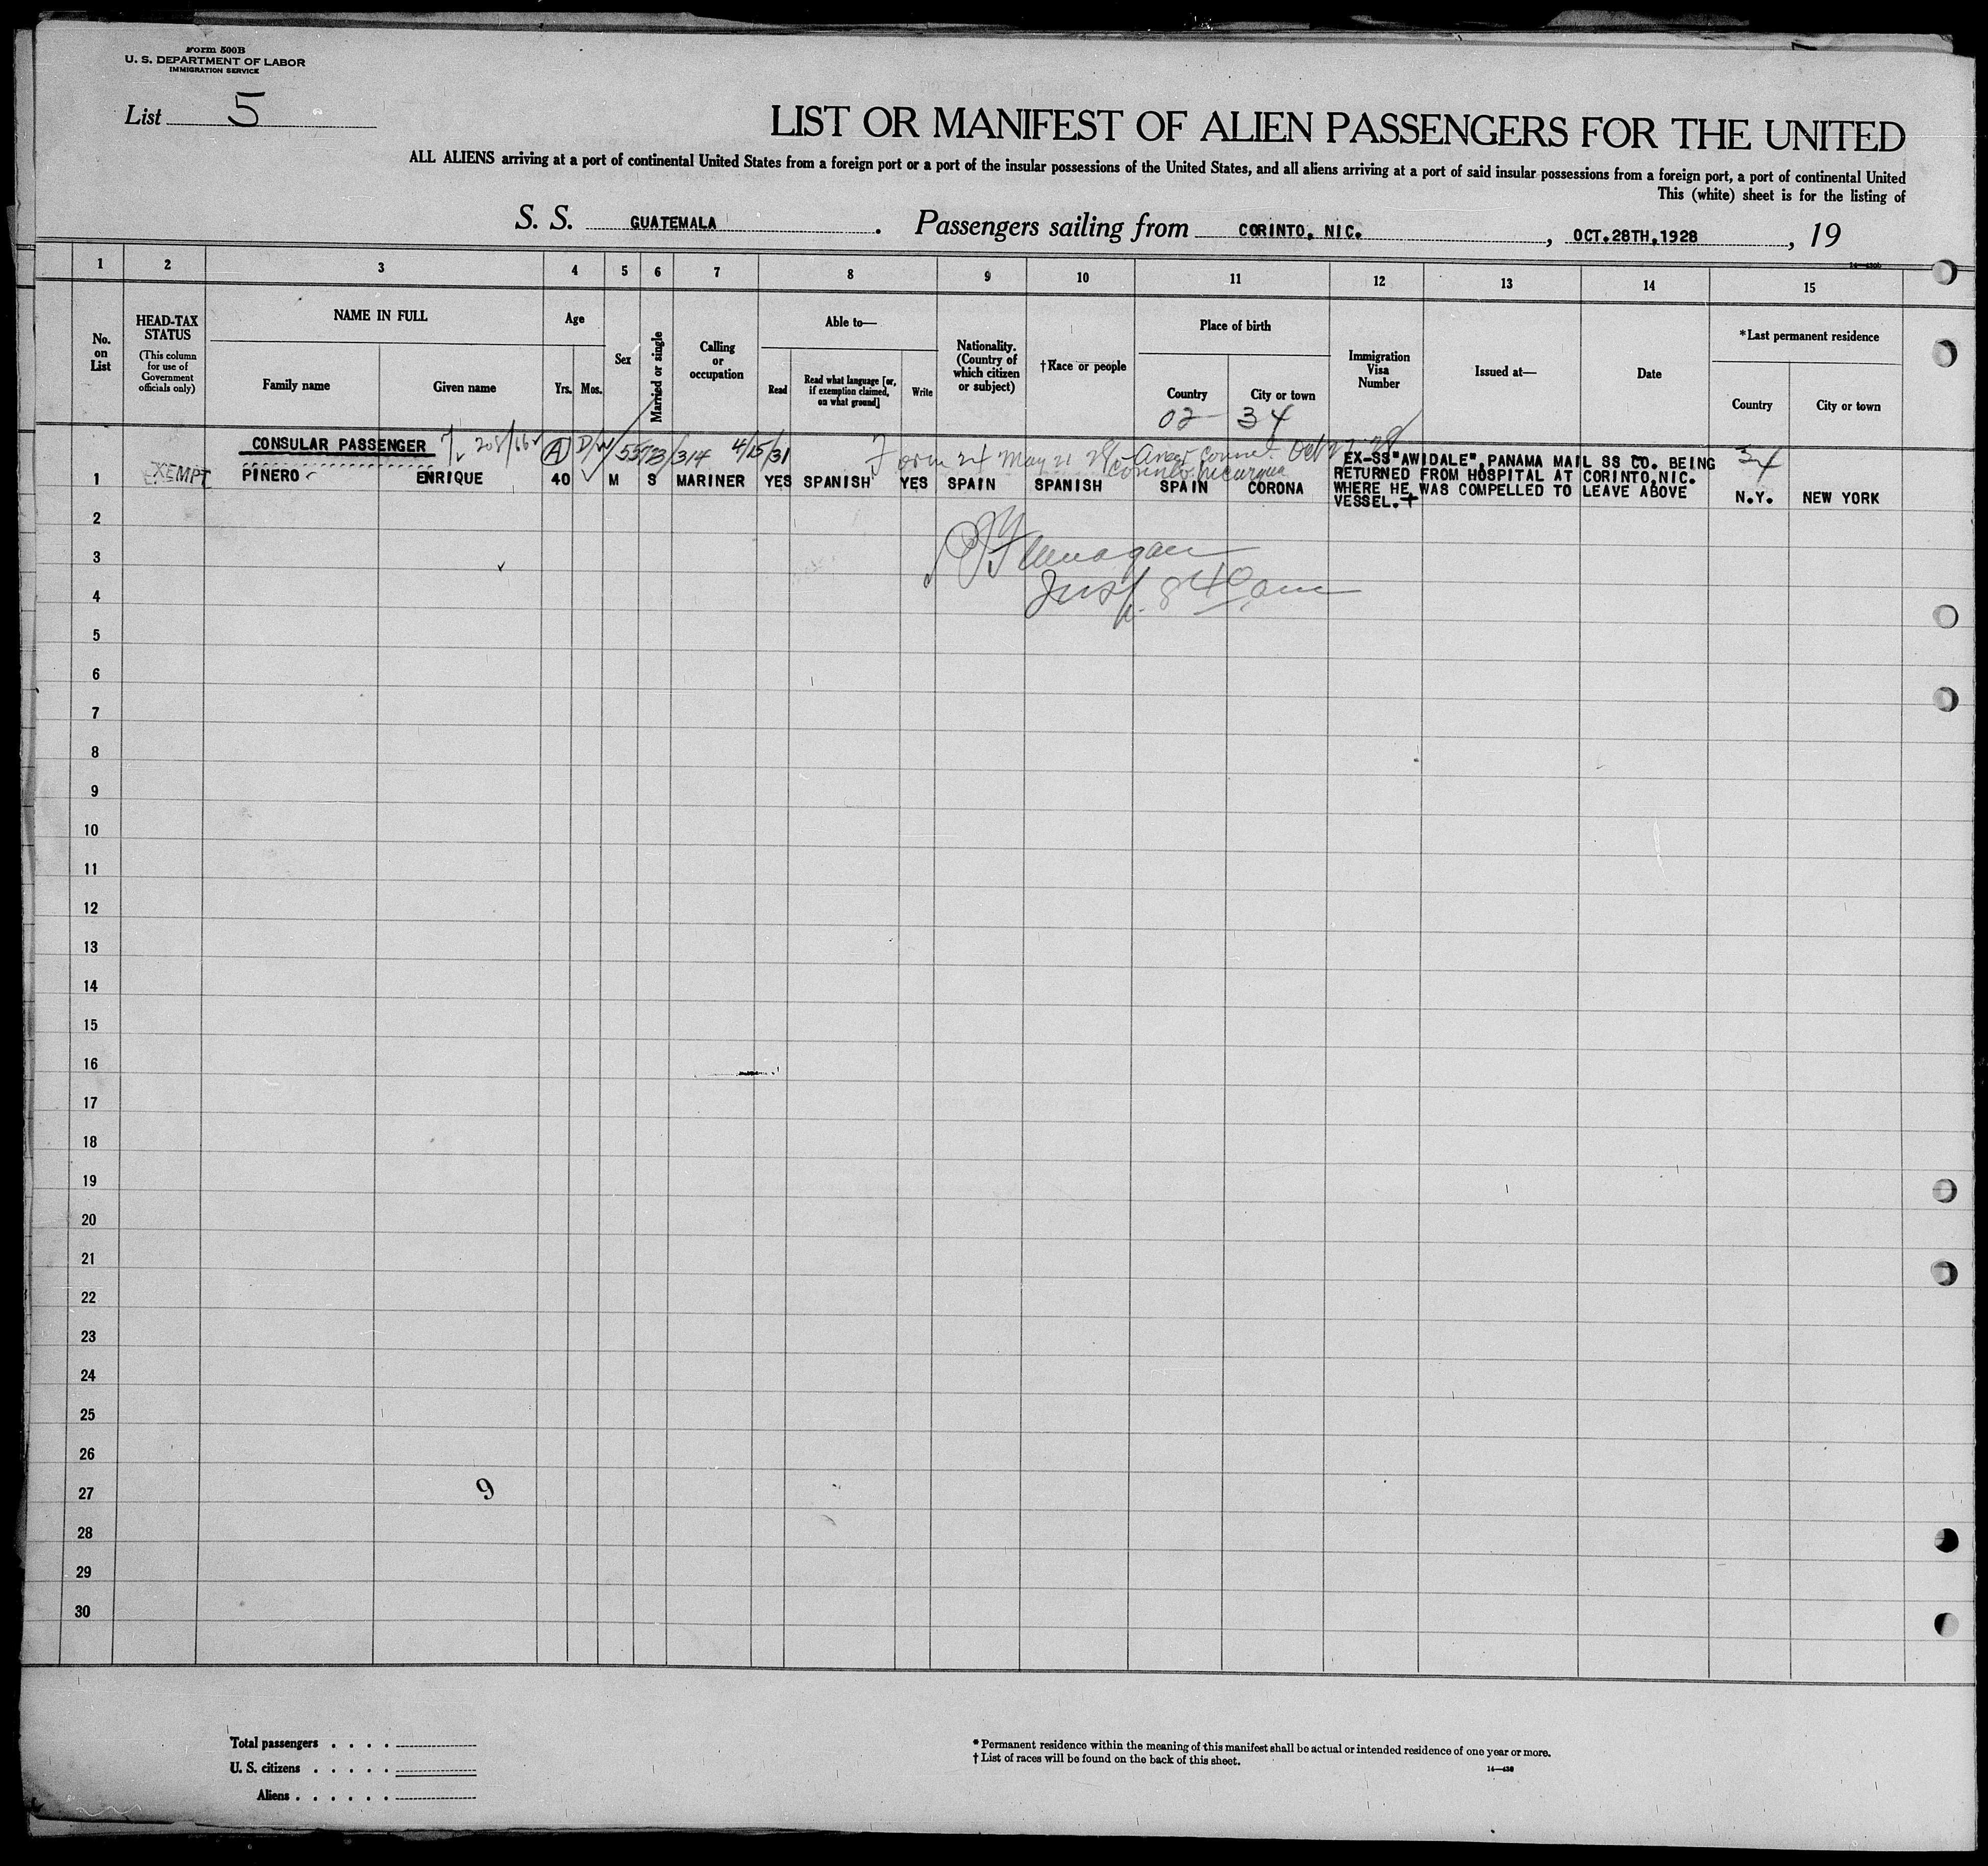 Form 500B
U. S. DEPARTMENT OF LABOR
IMMIGRATION SERVICE
List 5
LIST OR MANIFEST OF ALIEN PASSENGERS FOR THE UNITED
ALL ALIENS arriving at a port of continental United States from a foreign port or a port of the insular possessions of the United States, and all aliens arriving at a port of said insular possessions from a foreign port, a port of continental United
This (white) sheet is for the listing of
S. S. GUATEMALA . Passengers sailing from CORINTO, NIC. , OCT.28TH,1928 , 19
1 2 3 4 5 6 7 8 9 10 11 12 13 14 15
No. on List
HEAD-TAX STATUS
(This column for use of Government officials only)
NAME IN FULL
Family name
Given name
Age
Yrs. Mos.
Sex
Married or single
Calling or occupation
Able to—
Read
Read what language [or, if exemption claimed, on what ground]
Write
Nationality. (Country of which citizen or subject)
†Race or people
Place of birth
Country
City or town
02 34
Immigration Visa Number
Issued at—
Date
*Last permanent residence
Country
City or town
CONSULAR PASSENGER
A 5573/314 4/15/31
Form 24 May 21 28 Oct 27 28
Corinto Nicaragua
34
1 EXEMPT PINERO ENRIQUE 40 M S MARINER YES SPANISH YES SPAIN SPANISH SPAIN CORONA
EX-SS"AWIDALE",PANAMA MAIL SS CO. BEING
RETURNED FROM HOSPITAL AT CORINTO,NIC.
WHERE HE WAS COMPELLED TO LEAVE ABOVE
VESSEL.+
N.Y. NEW YORK
2
3
Flannagan
4
Insp. 840 am
5
6
7
8
9
10
11
12
13
14
15
16
17
18
19
20
21
22
23
24
25
26
27
9
28
29
30
Total passengers . . . .
U. S. citizens . . . . .
Aliens . . . . . .
* Permanent residence within the meaning of this manifest shall be actual or intended residence of one year or more.
† List of races will be found on the back of this sheet.
14—430